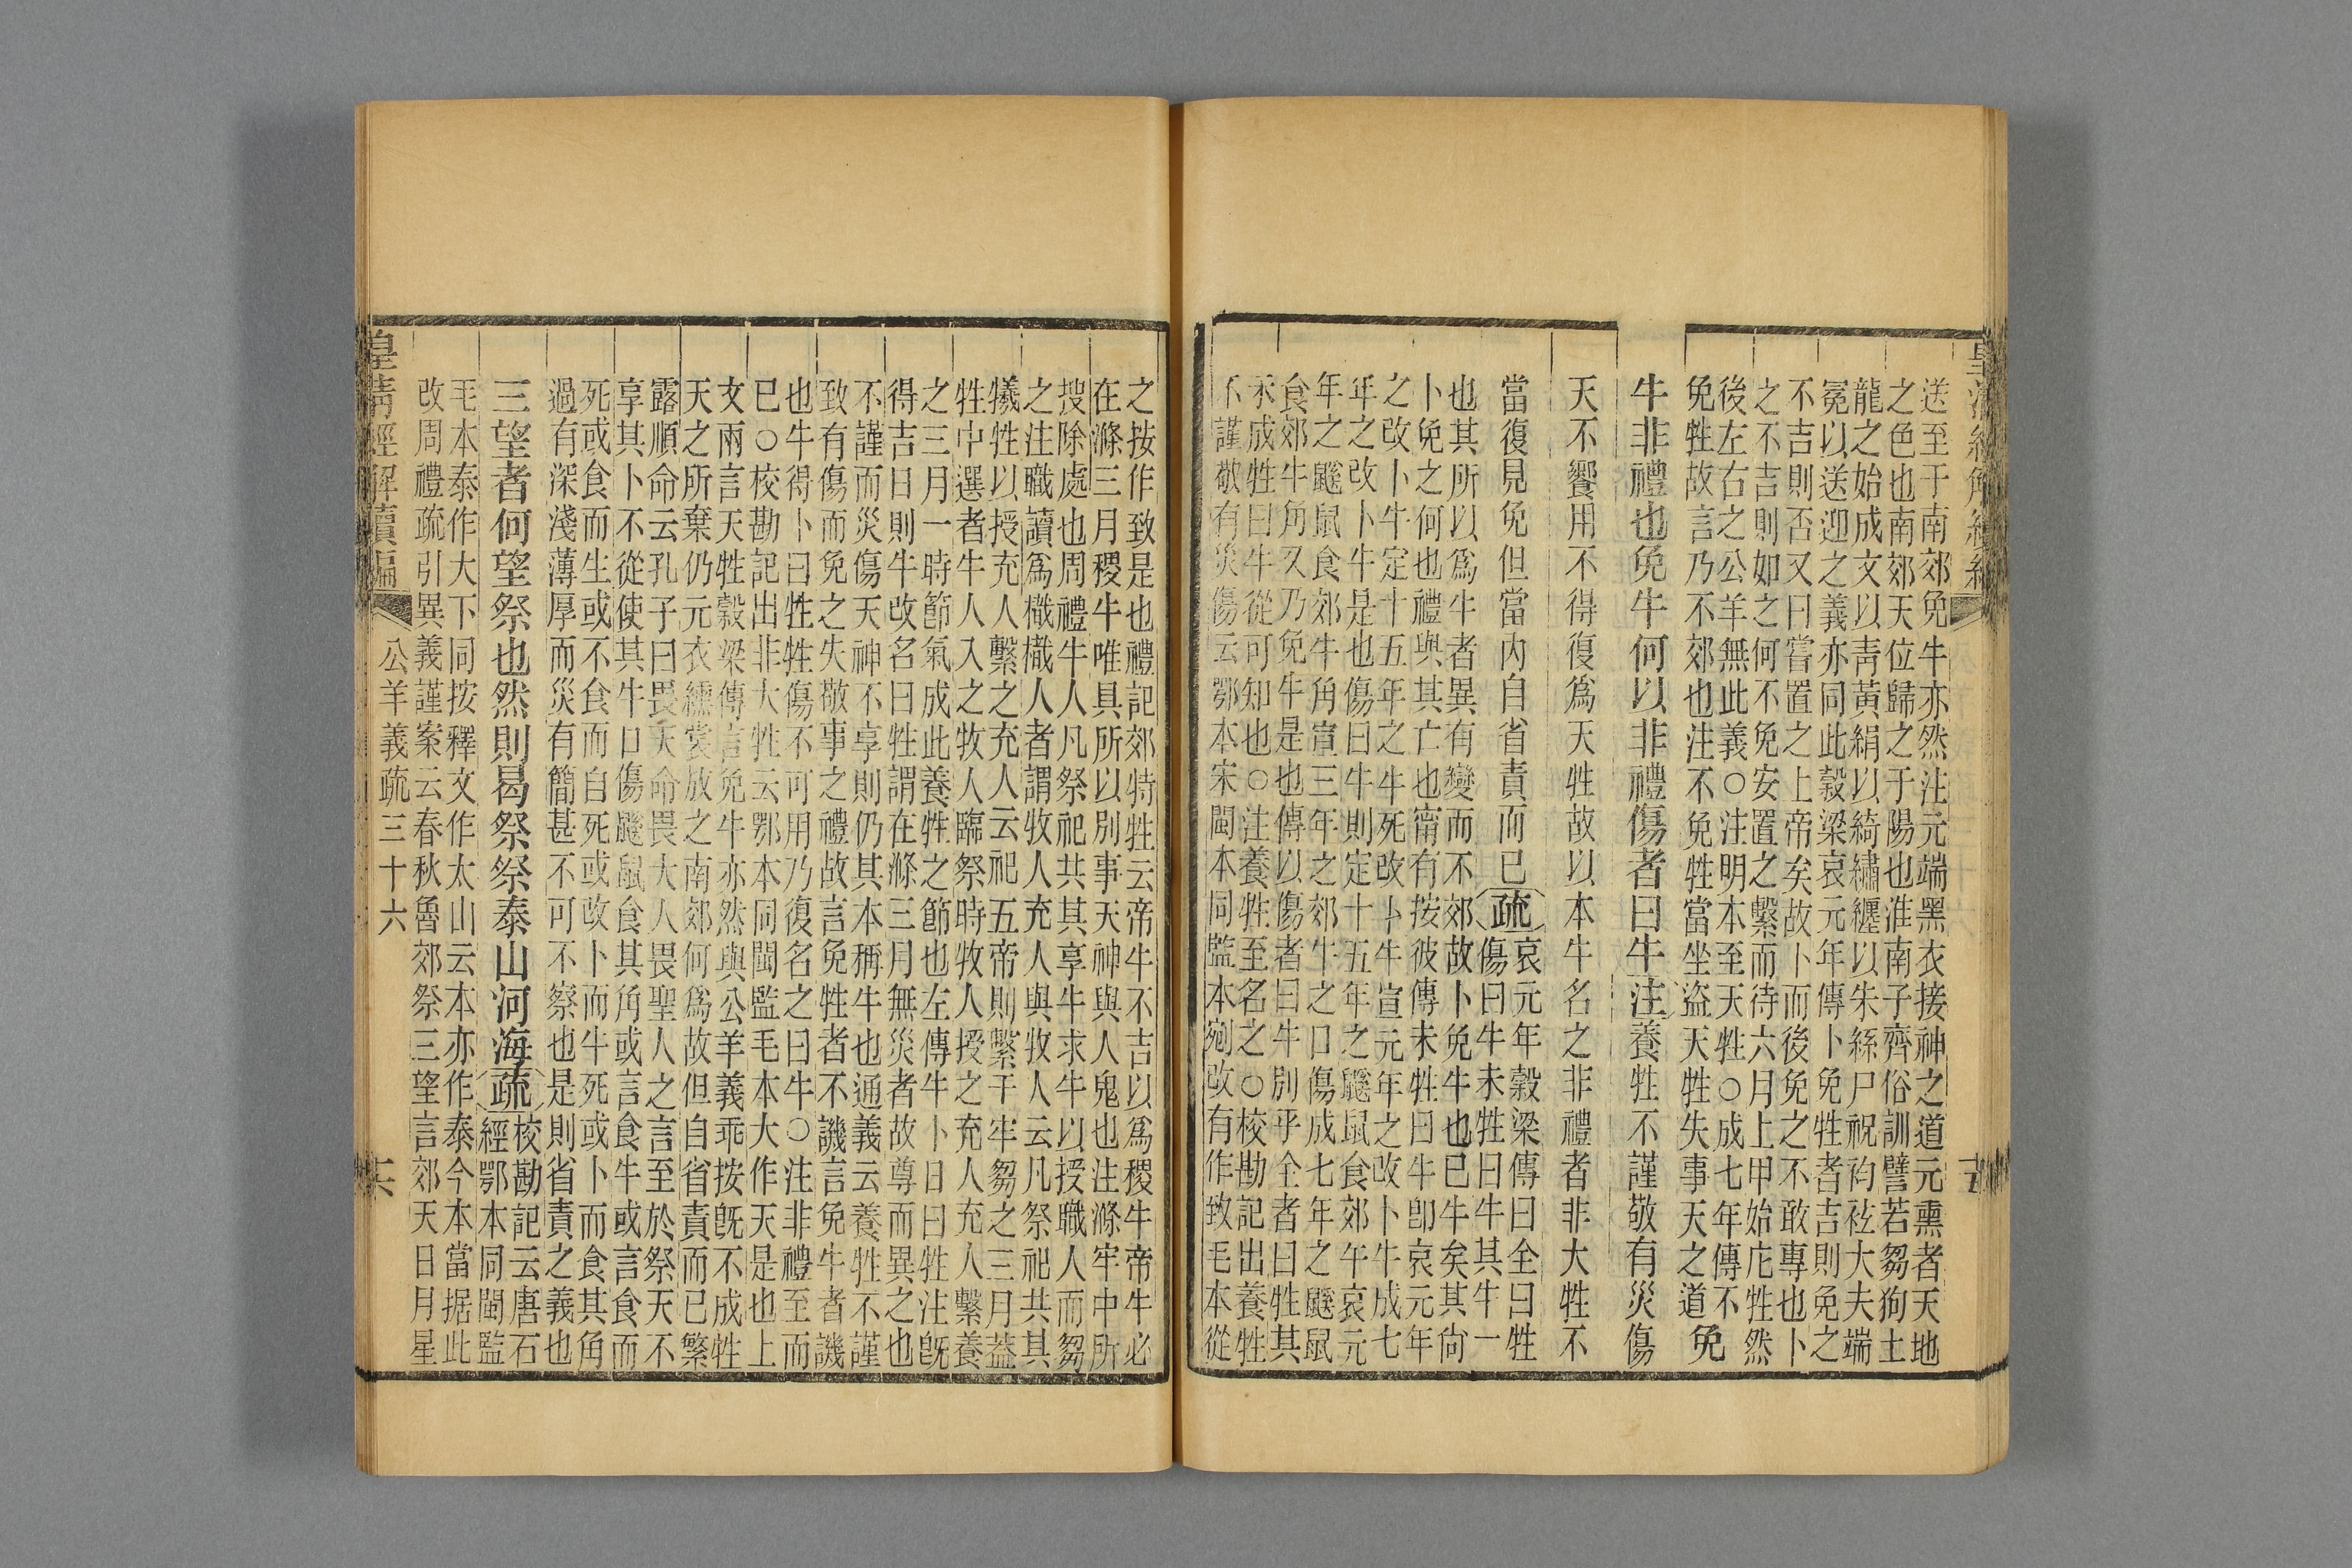 送至于南郊免牛亦然注元端黑衣接神之道元熏者天地
之色也南郊天位歸之于陽也淮南子齊俗訓譬若芻狗土
龍之始成文以靑黃絹以綺繡纏以朱絲尸祝袀袨大夫端
冕以送迎之義亦同此穀梁哀元年傳卜免牲者吉則免之
不吉則否又曰嘗置之上帝矣故卜而後免之不敢專也卜
之不吉則如之何不免安置之繫而待六月上甲始庀牲然
後左右之公羊無此義○注明本至天牲○成七年傳不
免牲故言乃不郊也注不免牲當坐盜天牲失事天之道免
牛非禮也免牛何以非禮傷者曰牛注養牲不謹敬有災傷
天不饗用不得復爲天牲故以本牛名之非禮者非大牲不
當復見免但當內自省責而已疏哀元年穀梁傳曰全曰牲
傷曰牛未牲曰牛其牛一
也其所以爲牛者異有變而不郊故卜免牛也已牛矣其尙
卜免之何也禮與其亡也甯有按彼傳未牲曰牛卽哀元年
之改卜牛定十五年之牛死改卜牛宣元年之改卜牛成七
年之改卜牛是也傷曰牛則定十五年之鼷鼠食郊午哀元
年之鼷鼠食郊牛角宣三年之郊牛之口傷成七年之鼷鼠
食郊牛角又乃免牛是也傳以傷者曰牛別乎全者曰牲其
未成牲曰牛從可知也○注養牲至名之○校勘記出養牲
不謹敬有災傷云鄂本宋閩本同監本剜改有作致毛本從
之按作致是也禮記郊特牲云帝牛不吉以爲稷牛帝牛必
在滌三月稷牛唯具所以別事天神與人鬼也注滌牢中所
搜除處也周禮牛人凡祭祀共其享牛求牛以授職人而芻
之注職讀爲樴樴人者謂牧人充人與牧人云凡祭祀共其
犧牲以授充人繫之充人云祀五帝則繫于牢芻之三月葢
牲中選者牛人入之牧人臨祭時牧人授之充人充人繫養
之三月一時節氣成此養牲之節也左傳牛卜日曰牲注旣
得吉日則牛改名曰牲謂在滌三月無災者故尊而異之也
不謹而災傷天神不享則仍其本稱牛也通義云養牲不謹
致有傷而免之失敬事之禮故言免牲者不譏言免牛者譏
也牛得卜曰牲牲傷不可用乃復名之曰牛○注非禮至而
已○校勘記出非大牲云鄂本同閩監毛本大作天是也上
文兩言天牲穀梁傳言免牛亦然與公羊義乖按旣不成牲
天之所棄仍元衣纁裳放之南郊何爲故但自省責而已繁
露順命云孔子曰畏天命畏大人畏聖人之言至於祭天不
享其卜不從使其牛口傷鼷鼠食其角或言食牛或言食而
死或食而生或不食而自死或改卜而牛死或卜而食其角
過有深淺薄厚而災有簡甚不可不察也是則省責之義也
三望者何望祭也然則曷祭祭泰山河海疏校勘記云唐石
經鄂本同閩監
毛本泰作大下同按釋文作太山云本亦作泰今本當据此
改周禮疏引異義謹案云春秋魯郊祭三望言郊天日月星
皇淸經解續編 公羊義疏三十六 十六